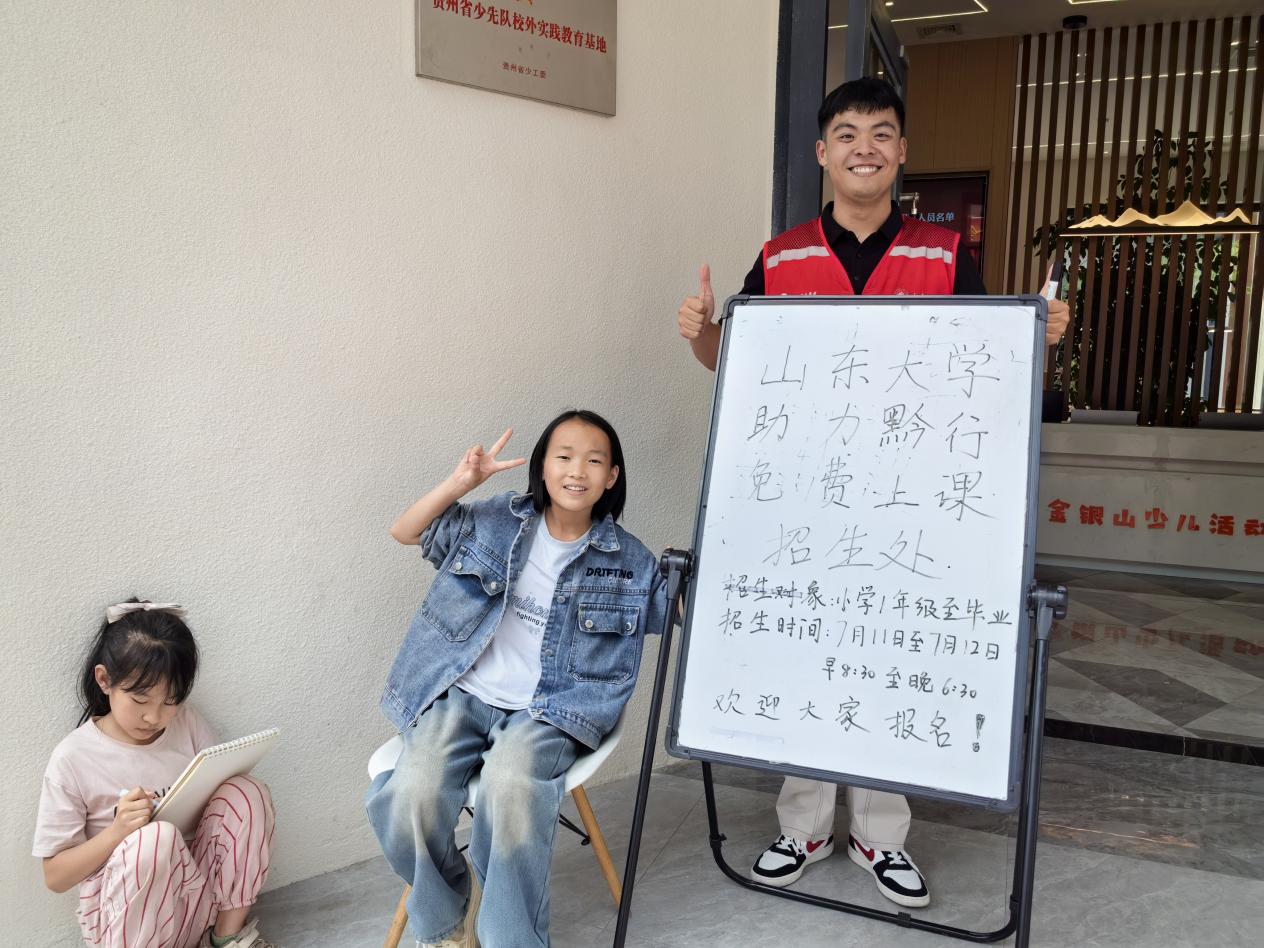 贵州省少先队校外实践教育基地
贵州省少工委
人员名单
山东大学
助力黔行
免费上课
招生处.
招生对象:小学1年级至毕业
招生时间:7月11日至7月12日
早8:30至晚6:30
欢迎大家报名!
金银山少儿活动
DRIFTING